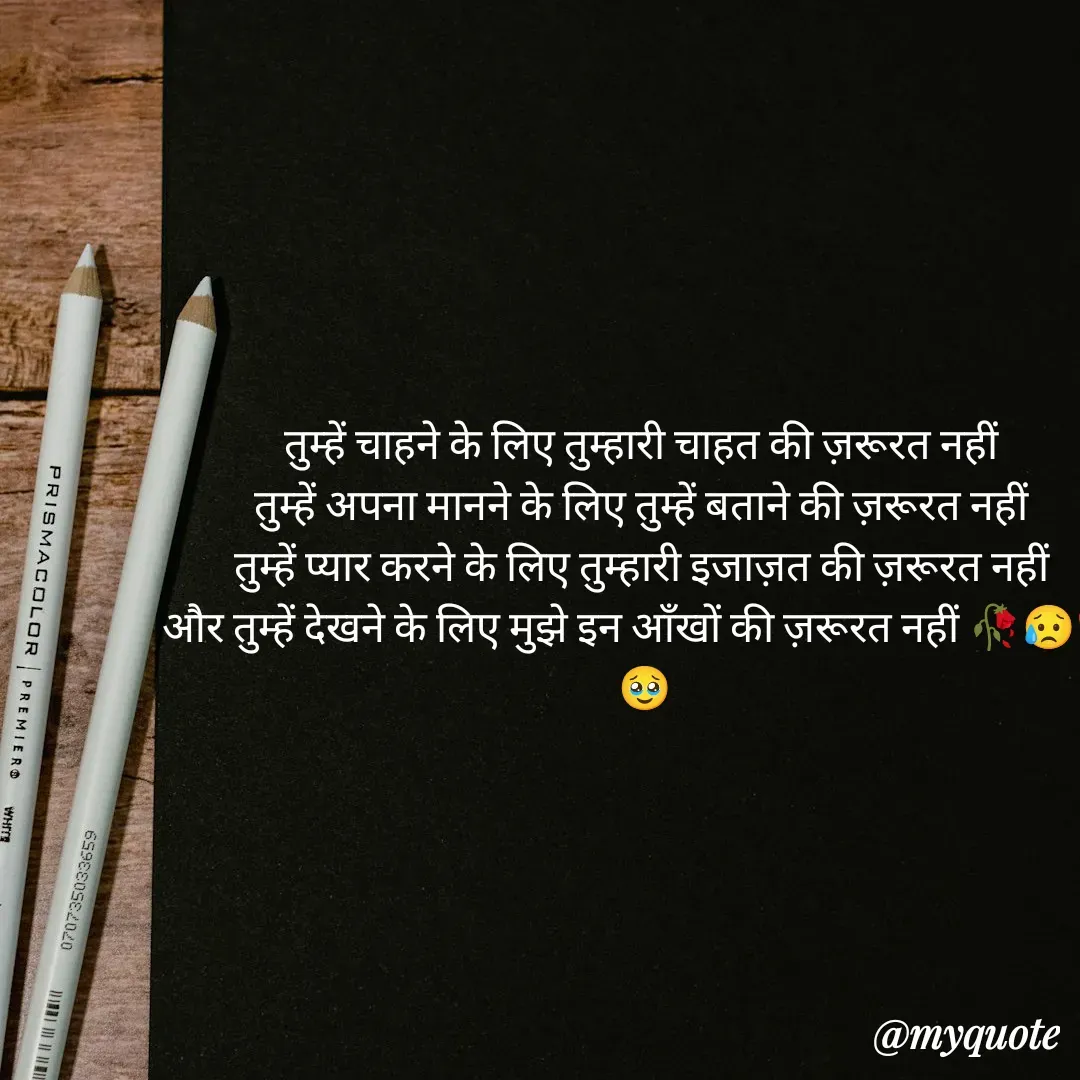 तुम्हें चाहने के लिए तुम्हारी चाहत की ज़रूरत नहीं
तुम्हें अपना मानने के लिए तुम्हें बताने की ज़रूरत नहीं
तुम्हें प्यार करने के लिए तुम्हारी इजाज़त की ज़रूरत नहीं
और तुम्हें देखने के लिए मुझे इन आँखों की ज़रूरत नहीं 🥀😥
🥹
PRISMACOLOR | PREMIER®
WHITE
070735033659
@myquote